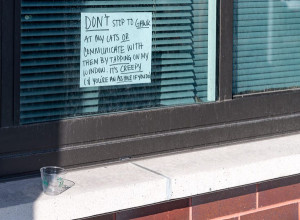 DON'T STOP TO GAWK
AT MY CATS OR
COMMUNICATE WITH
THEM BY TAPPING ON MY
WINDOW. IT'S CREEPY
& YOU'RE AN ASSHOLE IF YOU DO!